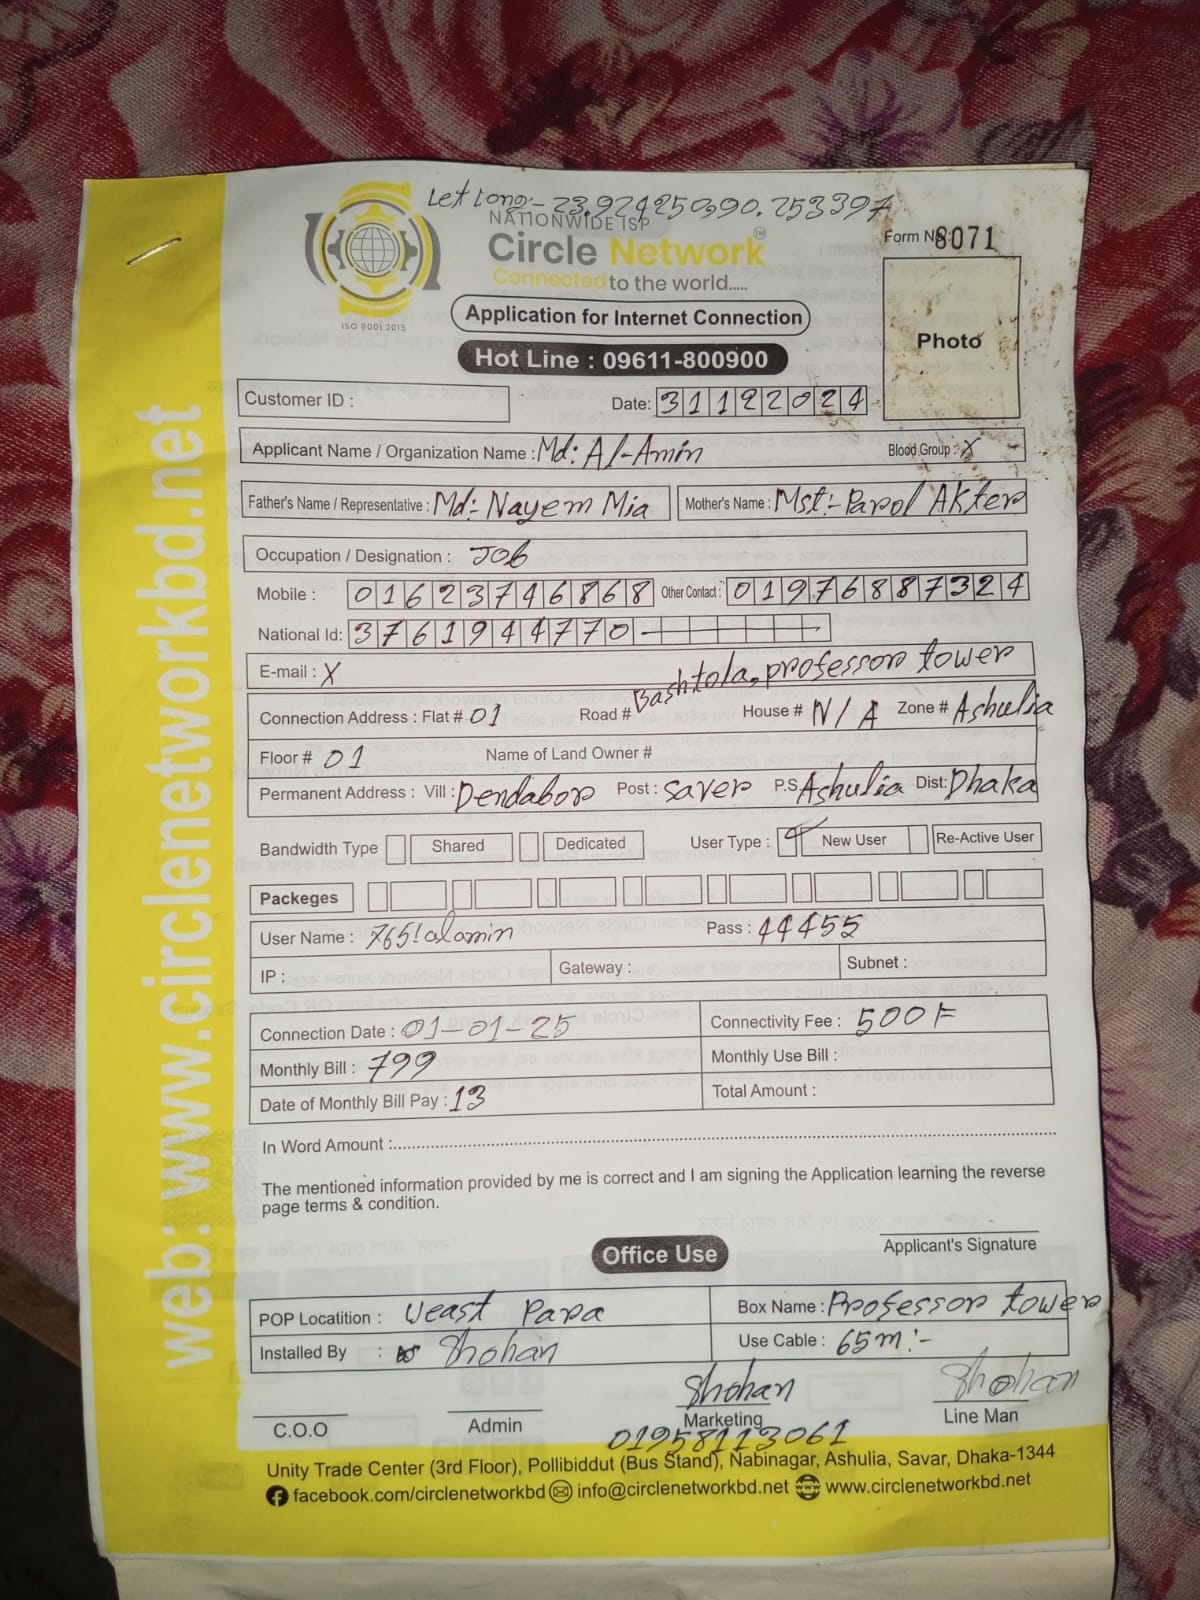 Let Long:- 23.924250,90.253397
NATIONWIDE ISP
Circle Network TM
Connected to the world.....
ISO 9001:2015
Form No: 8071
Photo
Application for Internet Connection
Hot Line : 09611-800900
Customer ID :
Date: 31122024
Applicant Name / Organization Name : Md: Al-Amin Blood Group : X
Father's Name / Representative : Md:- Nayem Mia Mother's Name : Mst:- Parol Akter
Occupation / Designation : Job
Mobile : 01623746868 Other Contact : 01976887324
National Id: 3761944770
E-mail : X
Bashtola, professor tower
Connection Address : Flat # 01 Road # House # N/A Zone # Ashulia
Floor # 01 Name of Land Owner #
Permanent Address : Vill : Dendabor Post : saver P.S Ashulia Dist: Dhaka
Bandwidth Type Shared Dedicated User Type : New User Re-Active User
Packeges
User Name : 765!alamin Pass : 44455
IP : Gateway : Subnet :
Connection Date : 01-01-25 Connectivity Fee : 500/=
Monthly Bill : 799 Monthly Use Bill :
Date of Monthly Bill Pay : 13 Total Amount :
In Word Amount :
The mentioned information provided by me is correct and I am signing the Application learning the reverse
page terms & condition.
Applicant's Signature
Office Use
POP Locatition : Weast Para Box Name : Professor tower
Installed By : Shohan Use Cable : 65m:-
Shohan Shohan
C.O.O Admin Marketing Line Man
01958113061
Unity Trade Center (3rd Floor), Pollibiddut (Bus Stand), Nabinagar, Ashulia, Savar, Dhaka-1344
facebook.com/circlenetworkbd info@circlenetworkbd.net www.circlenetworkbd.net
web: www.circlenetworkbd.net